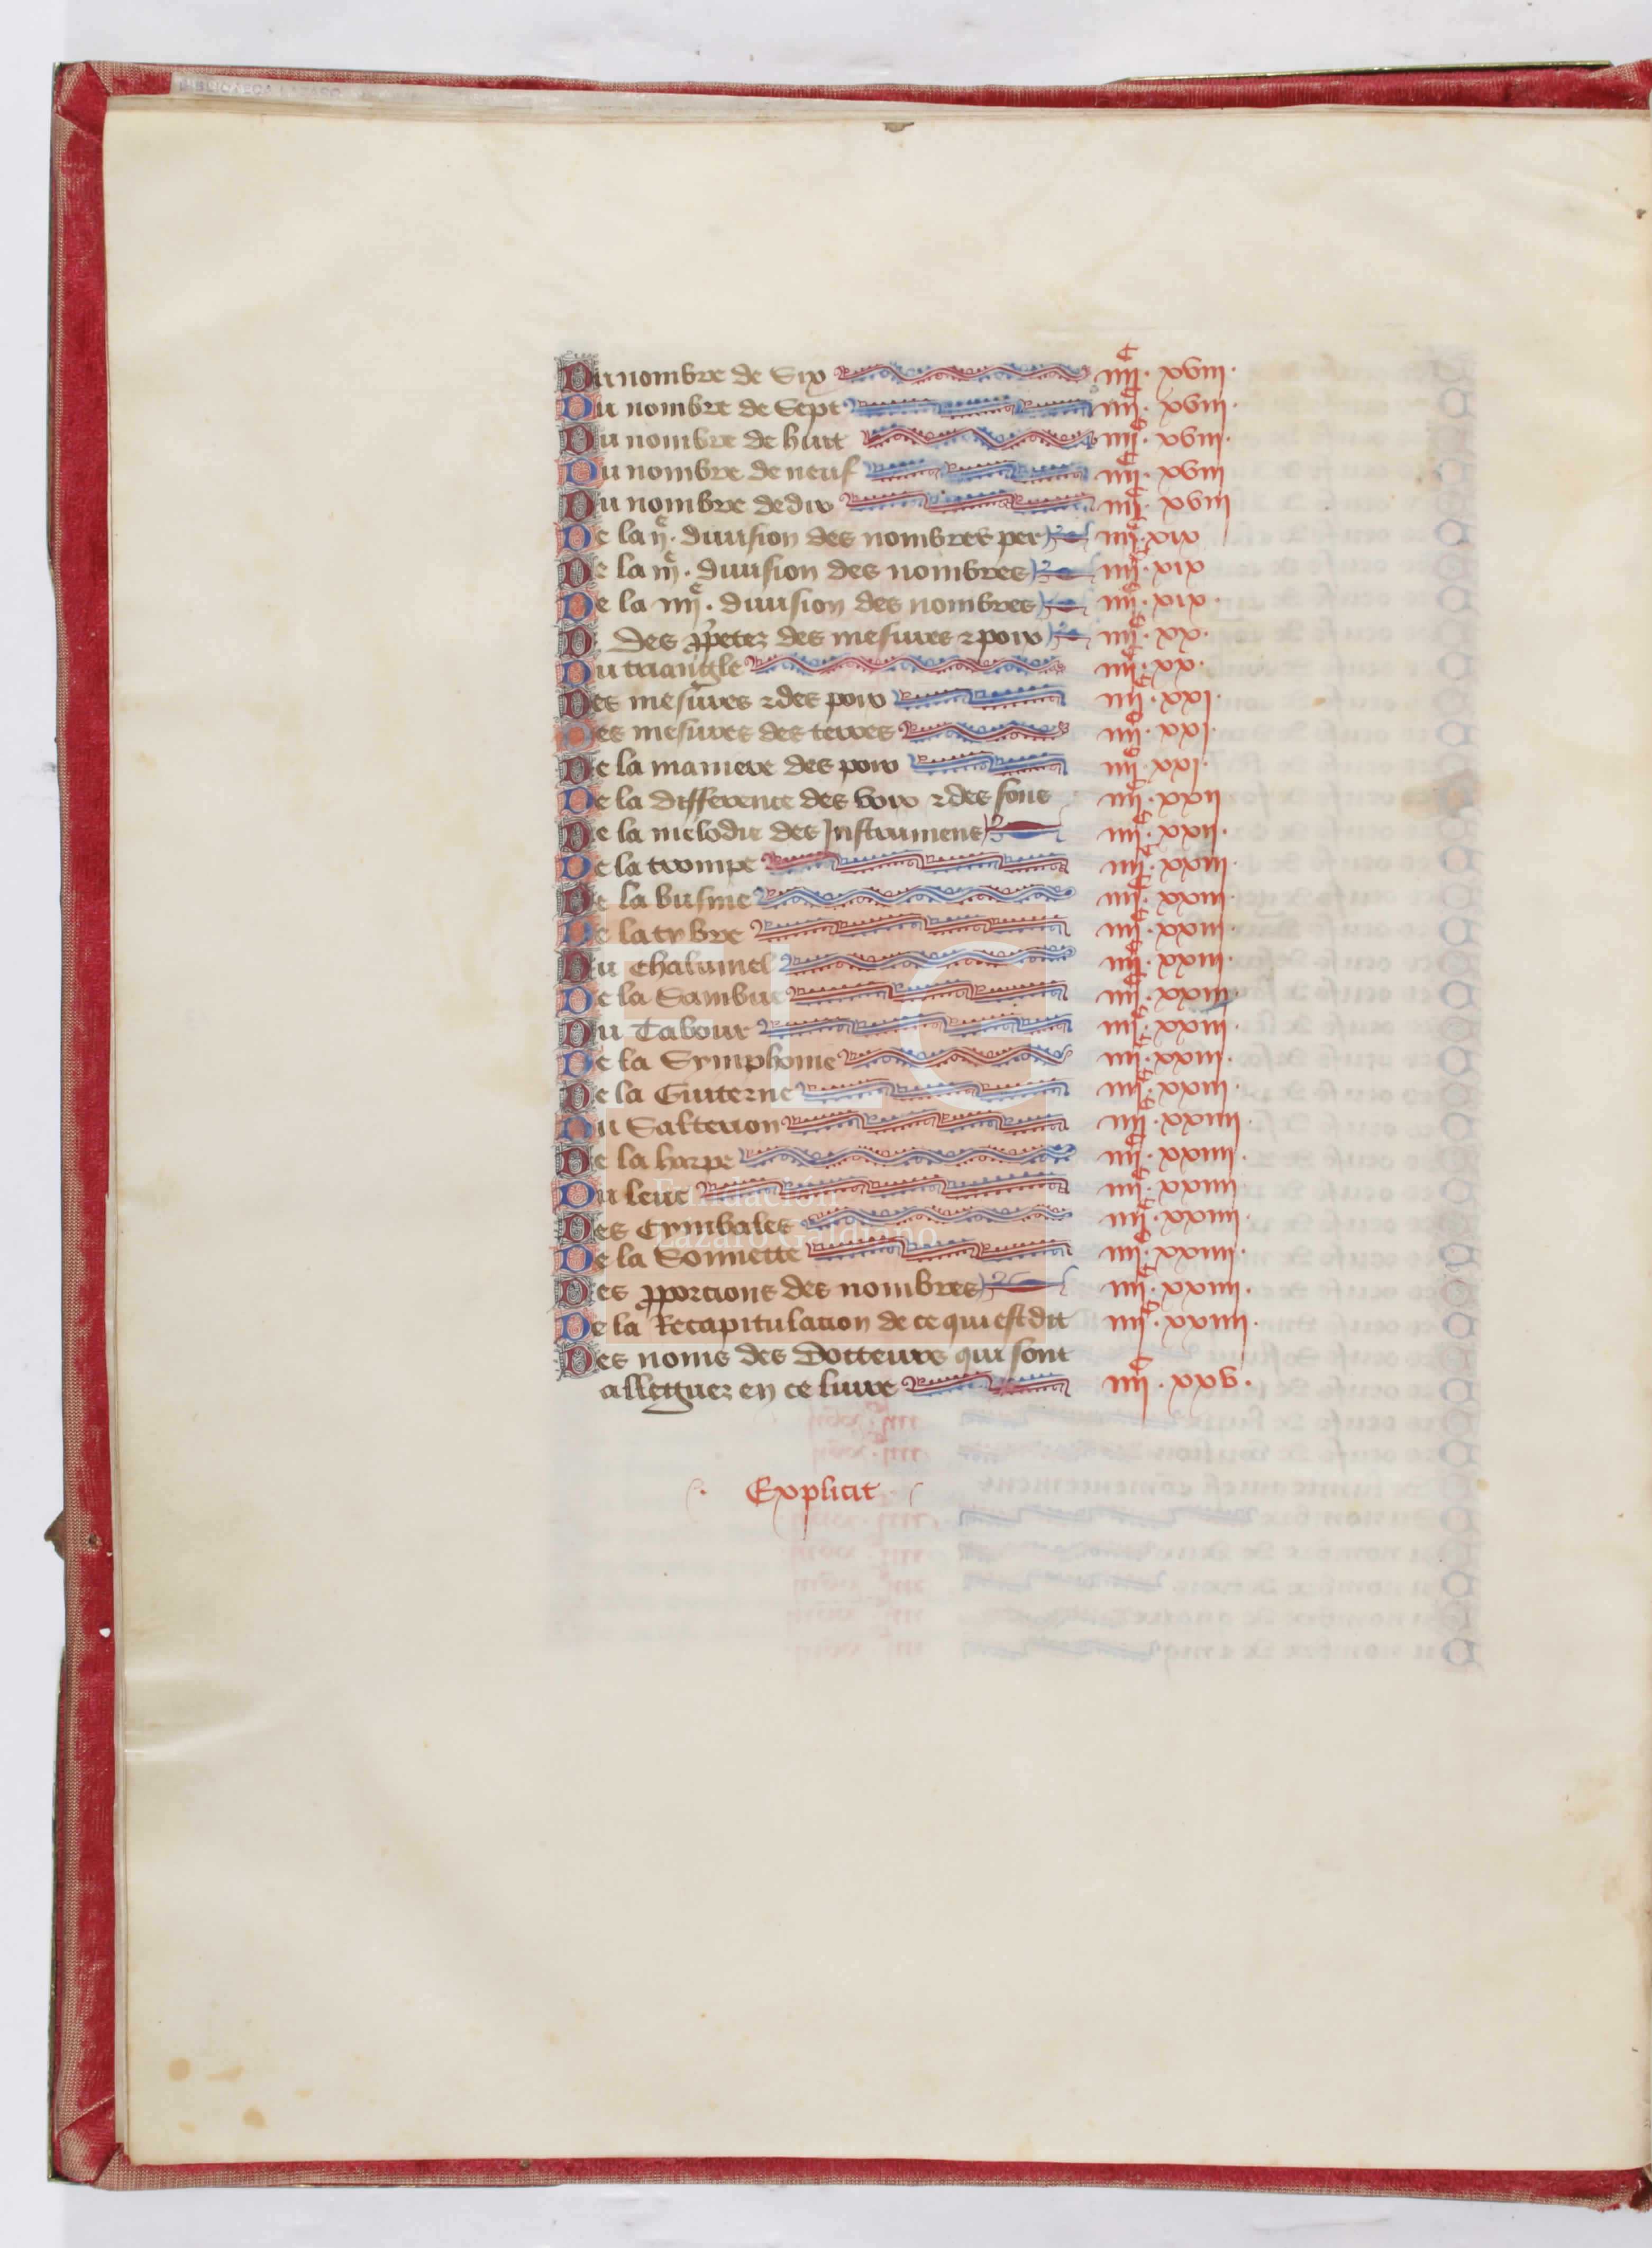 BIBLIOTECA LAZARO
Du nombre de Six iiiiᶜ. xviii.
Du nombre de Sept iiiiᶜ. xviii.
Du nombre de huit iiiiᶜ. xviii.
Du nombre de neuf iiiiᶜ. xviii
Du nombre de dix iiiiᶜ. xviii
De la iiᵉ. diuision des nombres per iiiiᶜ. xix
De la iiiᵉ. diuision des nombres iiiiᶜ. xix
De la iiiiᵉ. diuision des nombres iiiiᶜ. xix.
D. Des ꝓpetez des mesures ⁊ pois iiiiᶜ. xx.
Du triangle iiiiᶜ. xx.
Des mesures ⁊ des pois iiiiᶜ. xxi.
Des mesures des terres iiiiᶜ. xxi.
De la maniere des pois iiiiᶜ. xxi.
De la difference des voix ⁊ des sons iiiiᶜ. xxii
De la melodie des Instrumens iiiiᶜ. xxii.
De la trompe iiiiᶜ. xxiii.
De la busine iiiiᶜ. xxiii.
De la tybre iiiiᶜ. xxiii
Du Chalumel iiiiᶜ. xxiii.
De la Sambue iiiiᶜ. xxiii.
Du Tabour iiiiᶜ. xxiii.
De la Symphonie iiiiᶜ. xxiii.
De la Guiterne iiiiᶜ. xxiii.
Du Salterion iiiiᶜ. xxiiii.
De la harpe iiiiᶜ. xxiiii.
Du leuc iiiiᶜ. xxiiii
Des Cymbales iiiiᶜ. xxiiii.
De la Sonnette iiiiᶜ. xxiiii.
Des ꝓporcions des nombres iiiiᶜ. xxiiii.
De la Recapitulacion de ce qui est dit iiiiᶜ. xxiiii.
Des noms des Docteurs qui sont
alleguez en ce liure iiiiᶜ. xxv.
Explicit
FLG
Fundación
Lázaro Galdiano